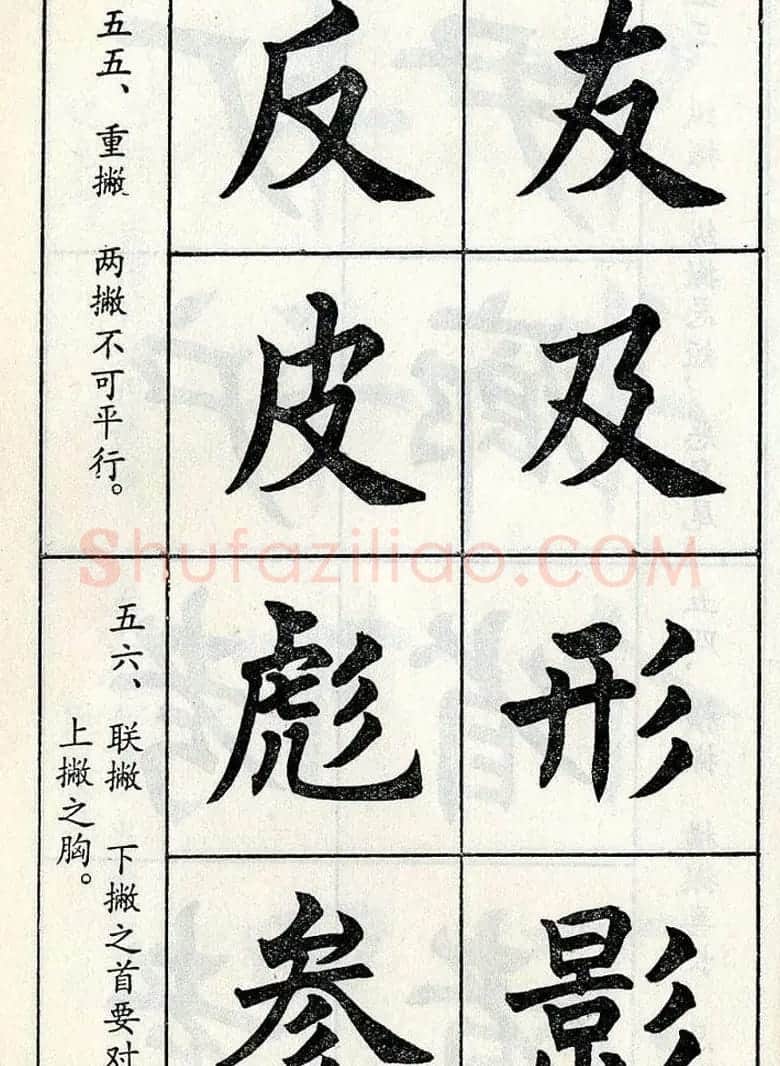 五五、重撇 两撇不可平行。
友 反
及 皮
Shufaziliao.COM
五六、联撇 下撇之首要对
上撇之胸。
形 彪
影 参